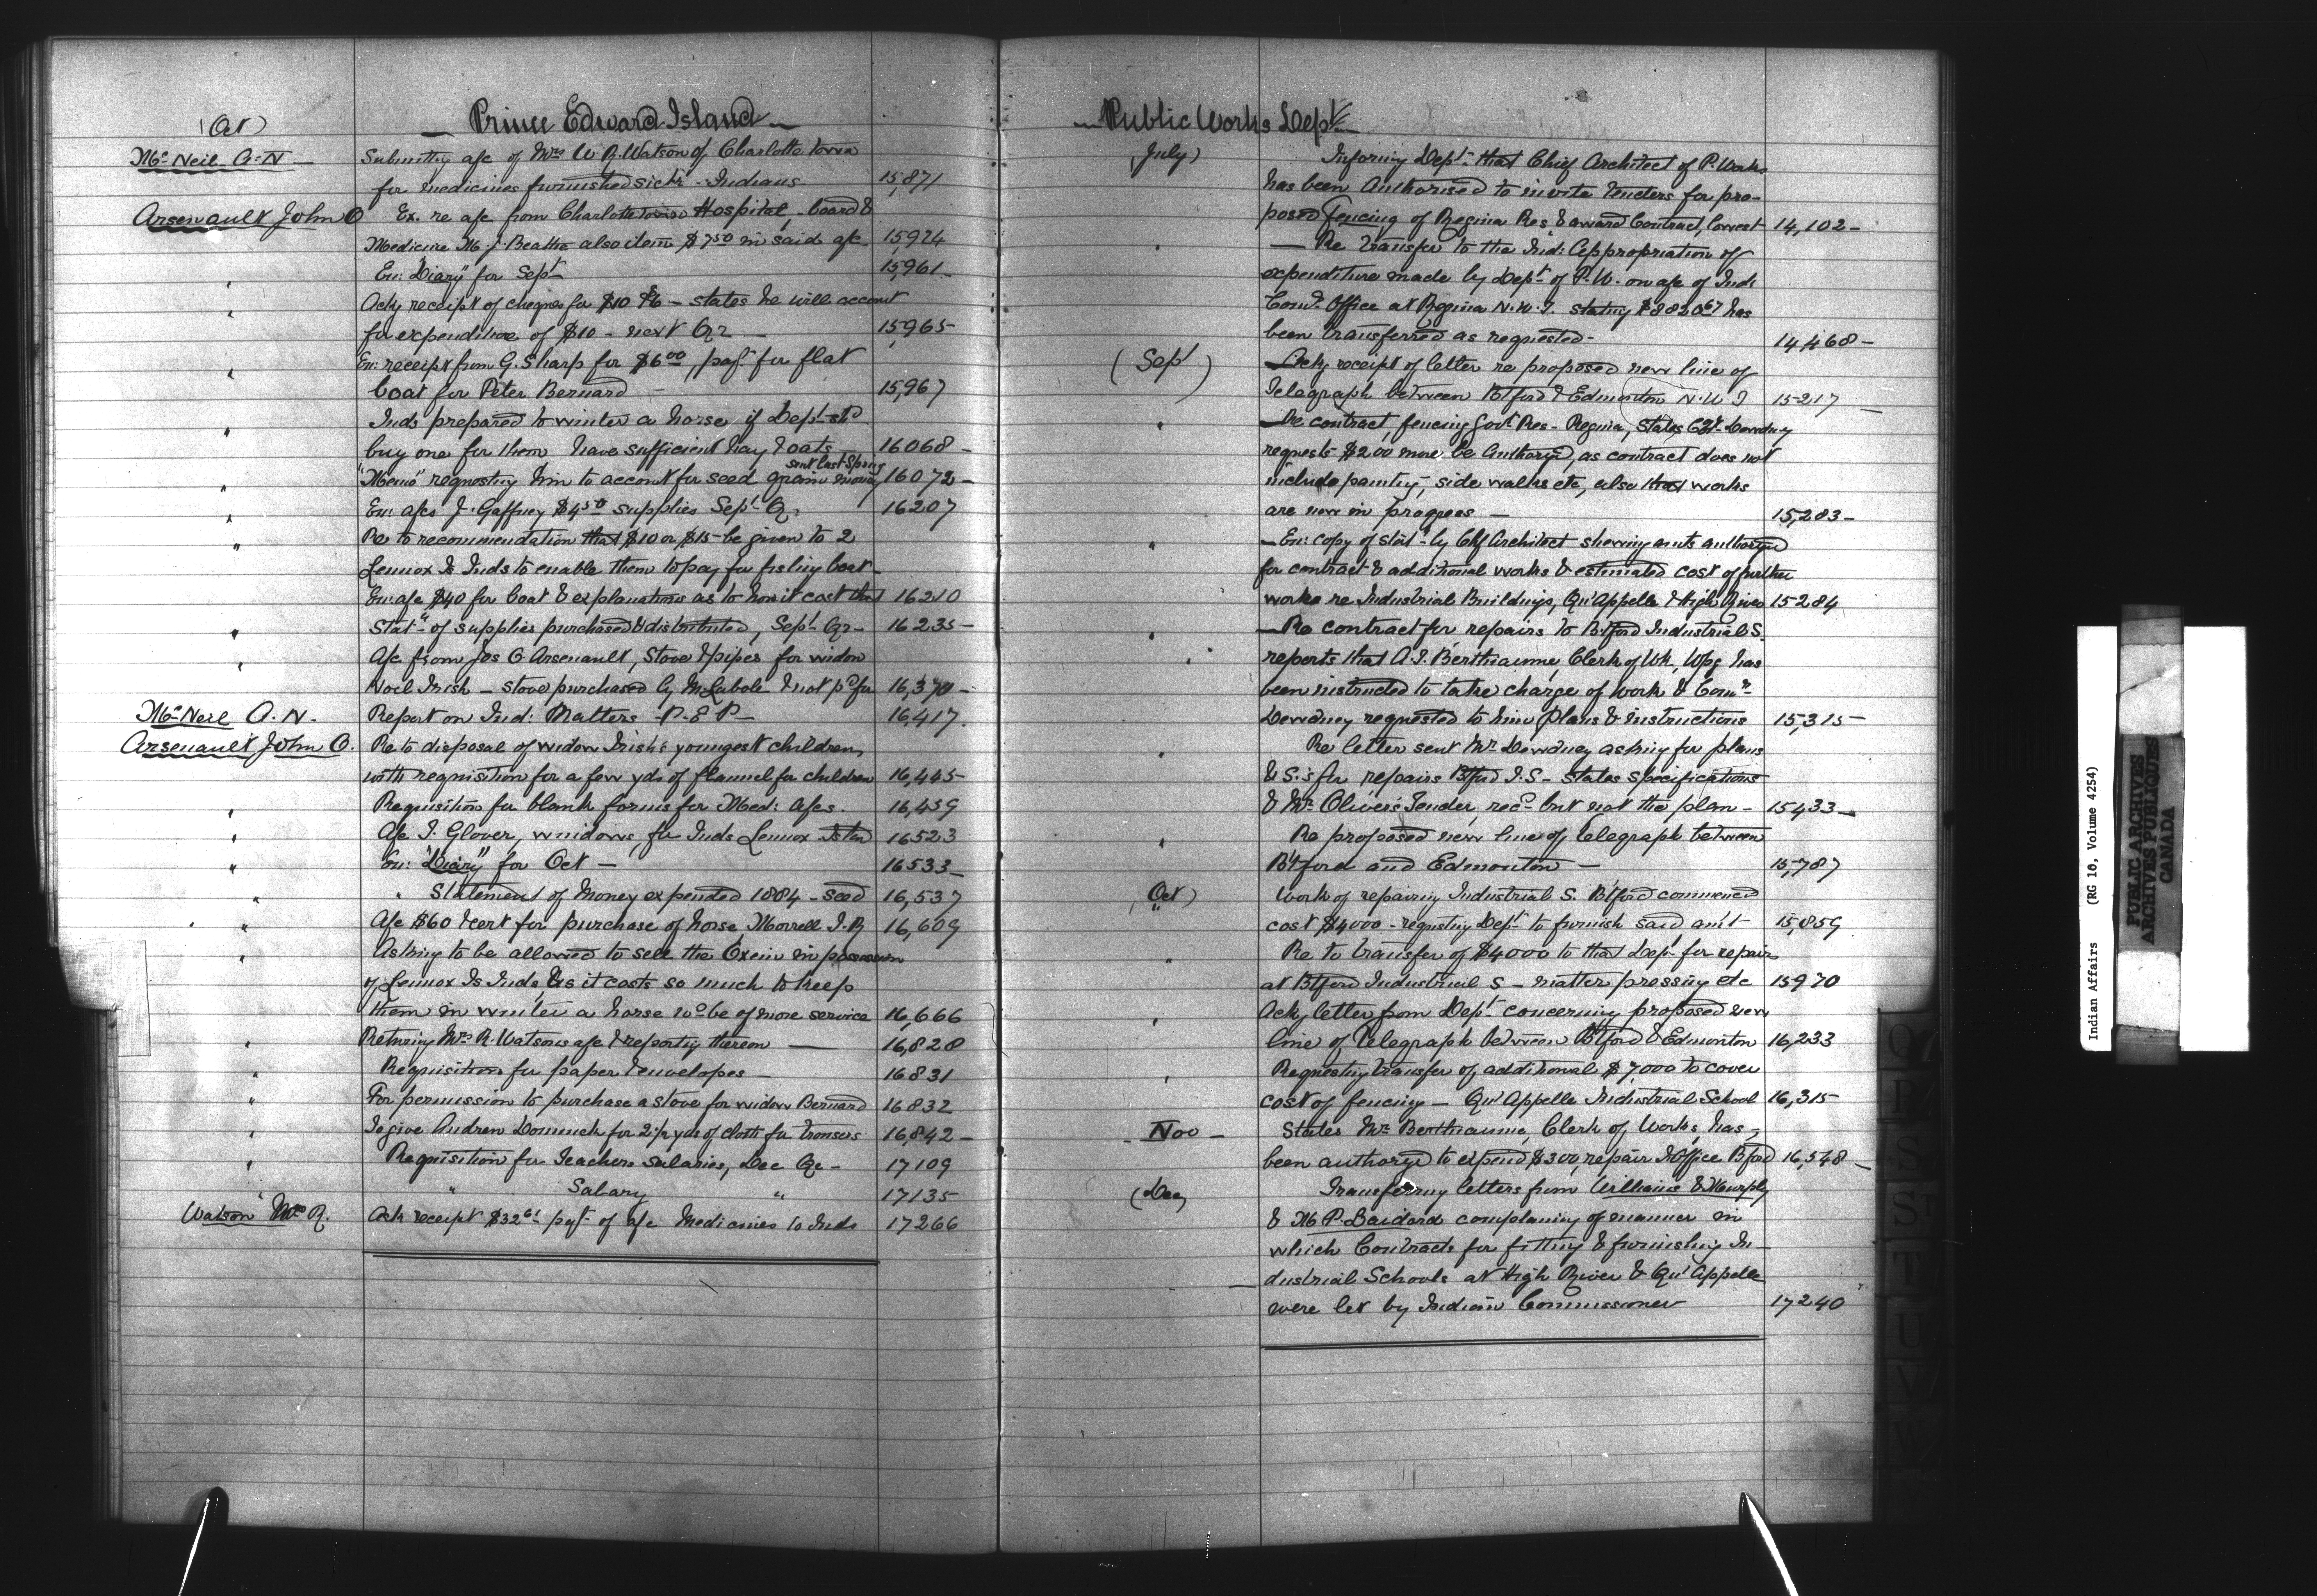 (Oct)
— Prince Edward Island —
McNeil A. N —
Submittg a/c of Mrs W. R. Watson of Charlotte Town
for medicines furnished sick Indians 15,871
Arsenault John O
Ex. re a/c from Charlotte Town Hospital, board &
Medicine M. J. Beattie also item $7.50 in said a/c 15,924
" En: "Diary" for Sept 15,961
" Ackg receipt of cheques for $10 & 6 — states he will account
for expenditure of $10 — next Qr — 15,965
" En: receipt from G. Sharp for $6.00, payt for flat
boat for Peter Bernard — 15,967
" Inds prepared to winter a horse if Dept shd
buy one for them have sufficient hay & oats 16068 —
sent last Spring
" "Memo" requestng him to account for seed grain money 16072 —
" En: a/cs J. Gaffney $4.50 supplies Sept Qr 16207
" Re to recommendation that $10 or $15 be given to 2
Lennox Is Inds to enable them to pay for fishing boat —
En: a/c $40 for boat & explanations as to how it cost that 16210
" Statmt of supplies purchased & distributed, Sept Qr — 16235 —
" A/c from Jos O Arsenault, stove & pipes for widow
Noel Irish — stove purchased by & not pd for 16,370 —
McNeil A. N.
Report on Ind: Matters — P. E. I — 16,417
Arsenault, John O.
Re to disposal of widow Irish's youngest children,
with requisition for a few yds of flannel for children 16,445
" Requisition for blank forms for Med: a/cs. 16,459
" A/c J. Glover, windows, for Inds Lennox Island 16523
" En: "Diary" for Oct — 16533 —
" " Statement of Money expended 1884 — seed 16,537
" A/c $60 & cert for purchase of horse, Morrell I. R 16,609
" Asking to be allowed to sell the Oxen in possession
of Lennox Is Inds, as it costs so much to keep
them in winter a horse wd be of more service 16,666
" Returng Mrs R. Watson's a/c & reportg thereon — 16,828
" Requisition for paper & envelopes — 16831
" For permission to purchase a stove for widow Bernard 16832
" To give Andrew Dominick for 2½ yds of cloth for trousers 16,842 —
" Requisition for Teachers Salaries, Dec Qr — 17109
" " Salary " 17135
Watson Mrs R.
Ack receipt $32.61 pyt of a/c Medicines to Inds 17266
— Public Works Dept —
(July)
Informg Dept that Chief Architect of P. Works
has been Authorised to invite tenders for pro-
posed fencing of Regina Res & award Contract, lowest 14,102 —
" — Re transfer to the Ind: Appropriation of
expenditure made by Dept of P. W. on a/c of Ind:
Comr Office at Regina N. W. T. stating $8820.67 has
been transferred as requested — 14,468 —
(Sept)
— Ackg receipt of letter re proposed new line of
Telegraph between Btford & Edmonton N. W T 15217 —
" — Re contract, fencing Govt Res — Regina, states Govr Dewdney
requests $200 more be Authorizd, as contract does not
include paintg, side walks etc, also that works
are now in progress — 15,283 —
" — En: copy of stat by Chf Architect showing amts authorizd
for contract & additional works & estimated cost of further
works re Industrial Buildings, Qu'Appelle & High River 15284
" — Re contract for repairs to Btford Industrial S.
" reports that A. J. Berthiaume, Clerk of Wk, Wpg has
been instructed to take charge of work & Comr
Dewdney requested to him Plans & instructions 15,315 —
" Re letter sent Mr Dewdney asking for plans
& S.'s for repairs Btford I. S — states specifications
& Mr Oliver's Tender, recd but not the plan — 15433 —
" Re proposed new line of telegraph between
Btford and Edmonton — 15,787
(Oct)
" Work of repairing Industrial S. Btford commenced
cost $4000 — requestg Dept to furnish said amt 15,859
" Re to transfer of $4000 to that Dept for repairs
at Btford Industrial S — matter pressing etc 15970
" Ackg letter from Dept concerning proposed new
line of Telegraph between Btford & Edmonton 16,233
" Requestg transfer of additional $7,000 to cover
cost of fencing — Qu'Appelle Industrial School 16,315
— Nov —
States Mr Berthiaume, Clerk of Works, has,
been authorizd to expend $300, repair I Office Bford 16,548 —
(Dec)
Transferring letters from Williams & Murphy
& M P. complaing of manner in
which Contracts for fitting & furnishing In-
dustrial Schools at High River & Qu'Appelle
were let by Indian Commissioner 17240
Indian Affairs (RG 10, Volume 4254)
PUBLIC ARCHIVES
ARCHIVES PUBLIQUES
CANADA